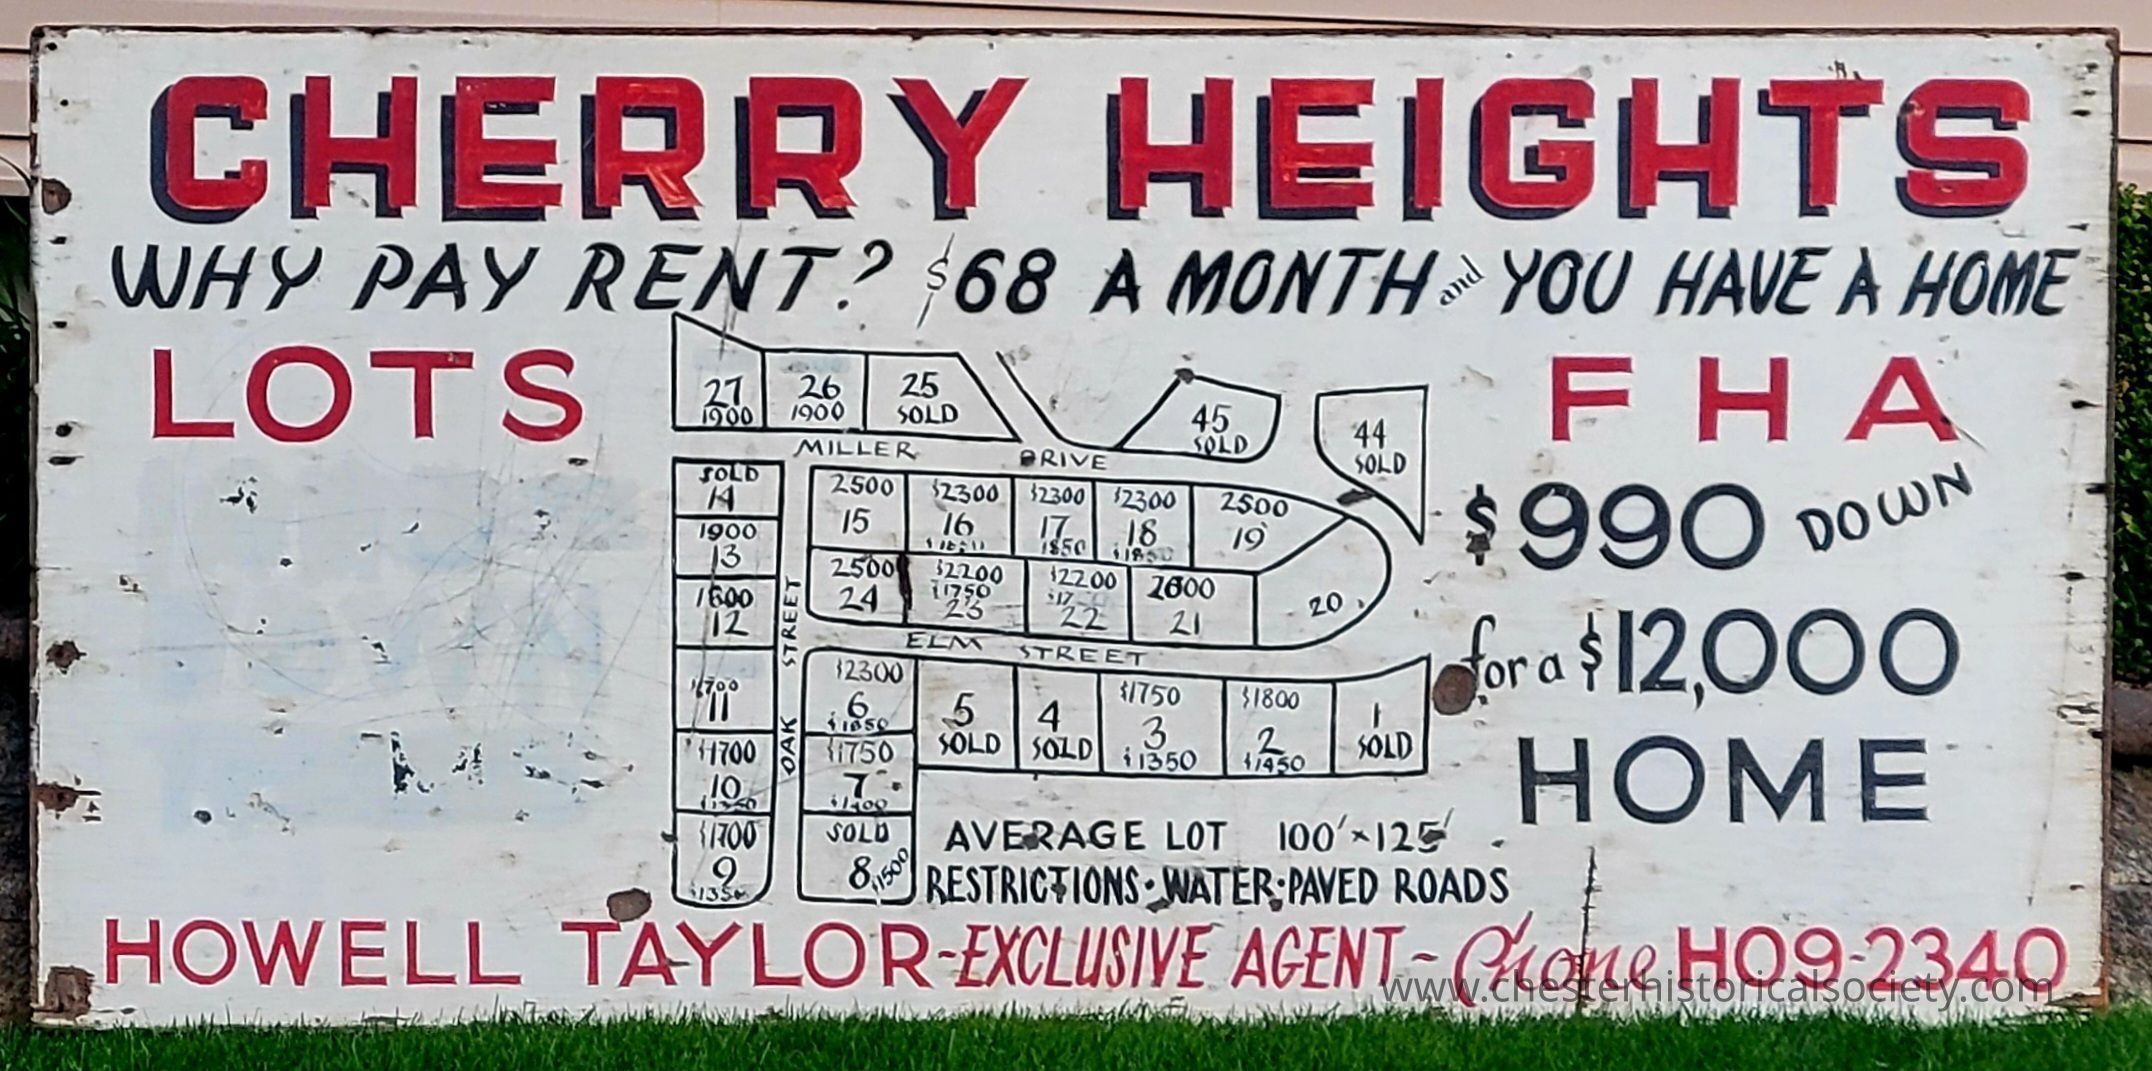 CHERRY HEIGHTS
WHY PAY RENT? $68 A MONTH and YOU HAVE A HOME
LOTS
FHA
$990 DOWN
for a $12,000
HOME
27
1900
26
1900
25
SOLD
45
SOLD
44
SOLD
MILLER DRIVE
SOLD
14
1900
13
12
11
$1700
10
$1700
9
2500
15
$2300
16
$2300
17
1850
$2300
18
2500
19
2500
24
$2200
$1750
23
$2200
22
21
20
ELM STREET
OAK STREET
$2300
6
$1850
$1750
7
SOLD
8
$1500
5
SOLD
4
SOLD
$1750
3
$1350
$1800
2
$1450
1
SOLD
AVERAGE LOT 100' × 125'
RESTRICTIONS · WATER · PAVED ROADS
HOWELL TAYLOR - EXCLUSIVE AGENT - Phone HO9-2340
www.chesterhistoricalsociety.com